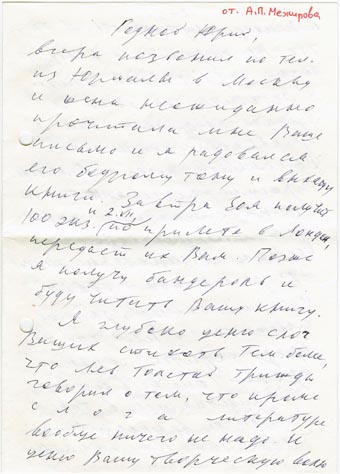 от. А.П. Межирова
Родной Юрий,
вчера позвонил по тел.
из Юрмалы в Москву
и жена неожиданно
прочитала мне Ваше
письмо и я радовался
его бодрому тону и выходу
книги. Завтра Зоя получит
100 экз. и 2.VII прилетев в Лондон,
передаст их Вам. Позже
я получу бандероль и
буду читать Вашу книгу.
Я глубоко ценю слог
Ваших стихов. Тем более,
что Лев Толстой трижды
говорил о том, что кроме
слога литературе
вообще ничего не надо. И
ценю Вашу творческую волю